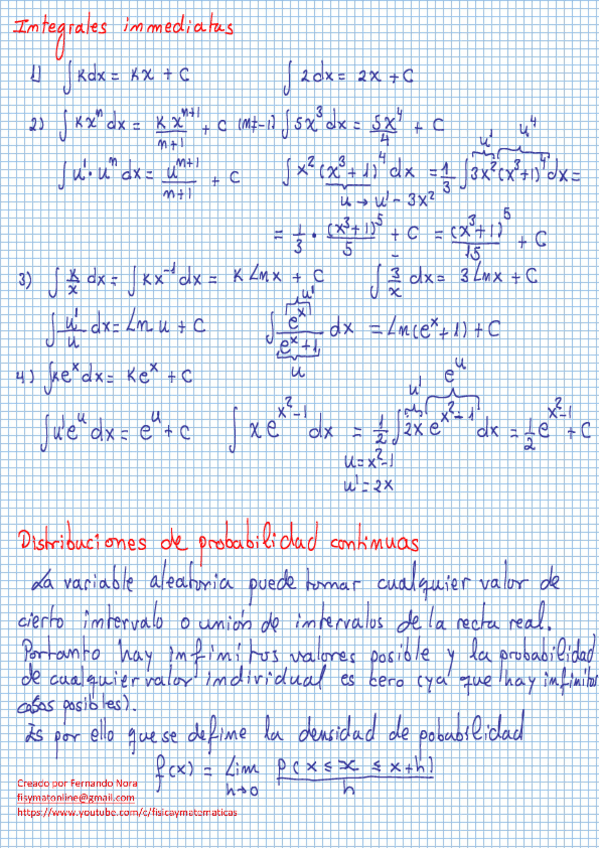 Integrales immediatas
1) ∫kdx = kx + C ∫2dx = 2x + C
2) ∫kxⁿdx = kxⁿ⁺¹/n+1 + C (n≠-1) ∫5x³dx = 5x⁴/4 + C
u' u⁴
∫u'·uⁿdx = uⁿ⁺¹/n+1 + C ∫x²(x³+1)⁴dx = 1/3 ∫3x²(x³+1)⁴dx =
u → u' - 3x²
= 1/3 · (x³+1)⁵/5 + C = (x³+1)⁵/15 + C
3) ∫k/x dx = ∫kx⁻¹dx = k Lnx + C ∫3/x dx = 3Lnx + C
u'
∫u'/u dx = Ln u + C ∫eˣ/eˣ+1 dx = Ln(eˣ+1) + C
u
4) ∫keˣdx = keˣ + C
u' eᵘ
∫u'eᵘdx = eᵘ + C ∫xe^x²-1 dx = 1/2 ∫2xe^x²-1 dx = 1/2 e^x²-1 + C
u = x²-1
u' = 2x
Distribuciones de probabilidad continuas
La variable aleatoria puede tomar cualquier valor de
cierto intervalo o unión de intervalos de la recta real.
Portanto hay infinitos valores posible y la probabilidad
de cualquier valor individual es cero (ya que hay infinitos
casos posibles).
Es por ello que se define la densidad de pobabilidad
f(x) = Lim h→0 P(x ≤ x ≤ x+h)/h
Creado por Fernando Nora
fisymatonline@gmail.com
https://www.youtube.com/c/fisicaymatematicas